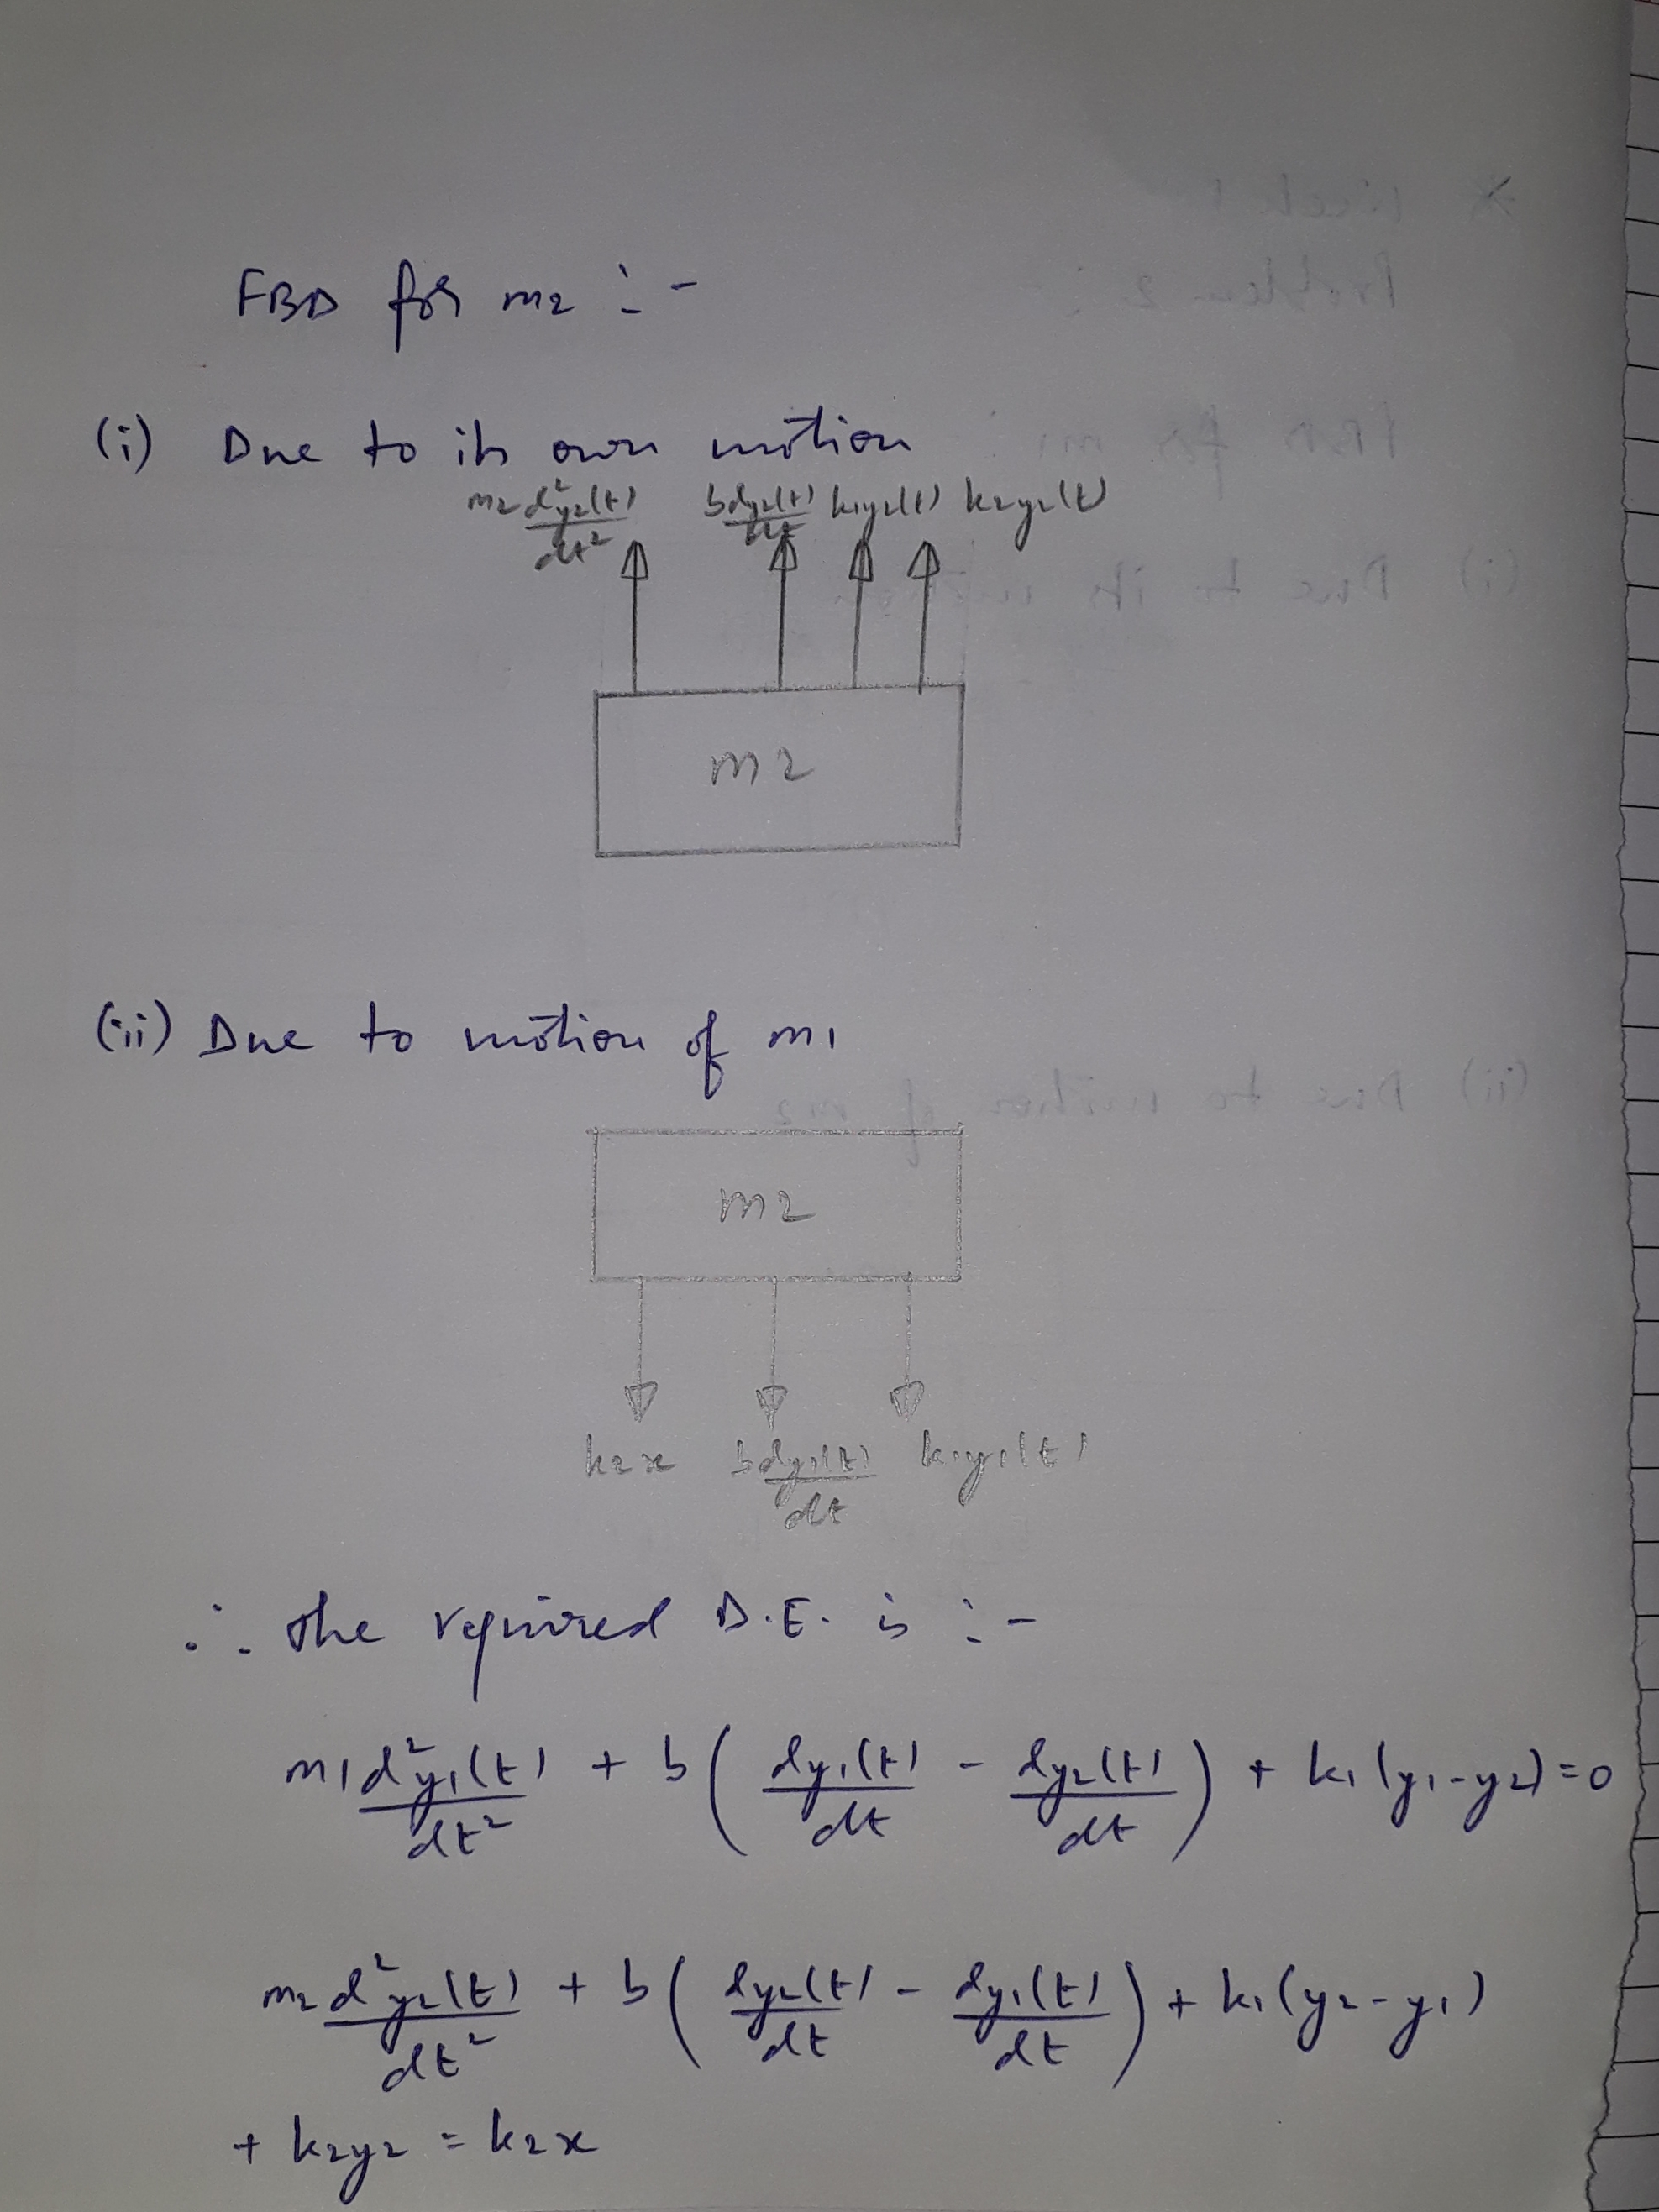 FBD for m2 :-
(i) Due to its own motion
m2 d²y2(t)/dt² b dy2(t)/dt k1y2(t) k2y2(t)
m2
(ii) Due to motion of m1
m2
k2x b dy1(t)/dt k1y1(t)
∴ the required D.E. is :-
m1 d²y1(t)/dt² + b ( dy1(t)/dt - dy2(t)/dt ) + k1 (y1-y2)=0
m2 d²y2(t)/dt² + b ( dy2(t)/dt - dy1(t)/dt ) + k1(y2-y1)
+ k2y2 = k2x